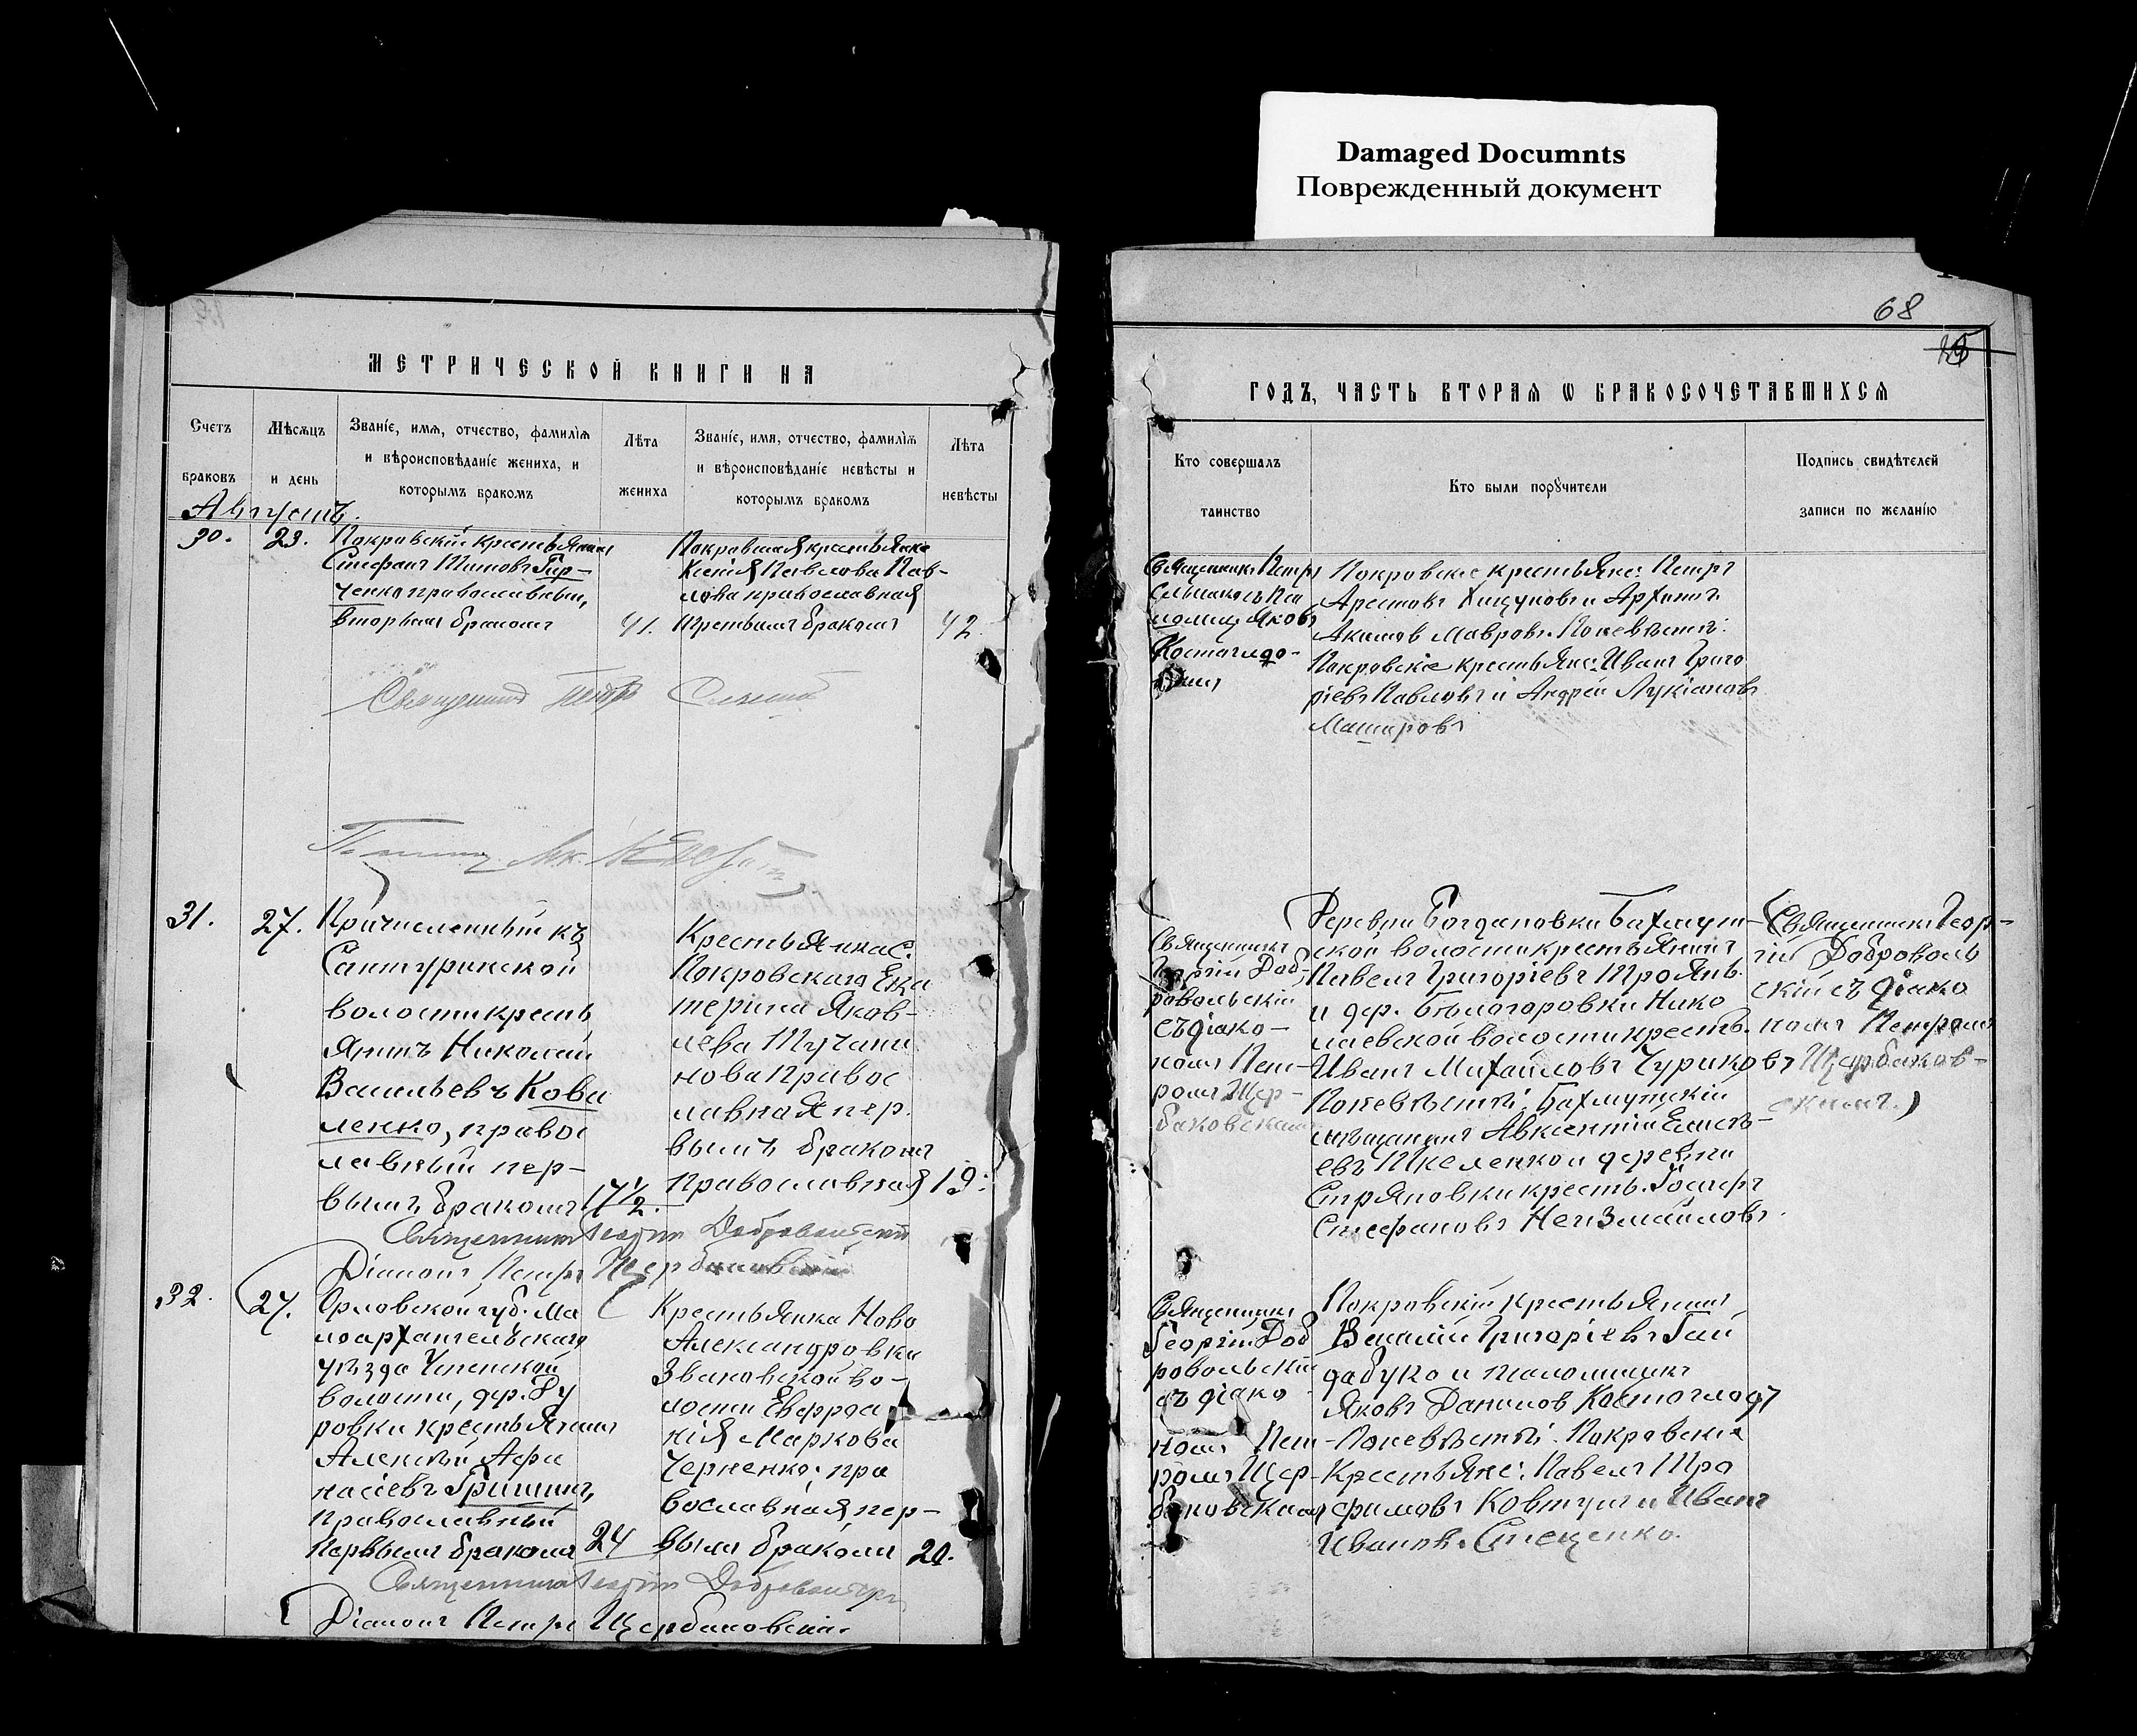 Damaged Documnts
Поврежденный документ
68
МЕТРИЧЕСКОЙ КНИГИ НА
ГОДЪ, ЧАСТЬ ВТОРАЯ Ѡ БРАКОСОЧЕТАВШИХСЯ
Счетъ
браковъ
Мѣсяцъ
и день
Званіе, имя, отчество, фамилія
и вѣроисповѣданіе жениха, и
которымъ бракомъ
Лѣта
жениха
Званіе, имя, отчество, фамилія
и вѣроисповѣданіе невѣсты и
которымъ бракомъ
Лѣта
невѣсты
Кто совершалъ
таинство
Кто были порꙋчители
Подпись свидѣтелей
записи по желанію
Августъ.
30.
23.
Покровскій крестьянинъ
Стефанъ Титовъ Гир-
ченко православный,
вторымъ бракомъ
41.
Покровская крестьянка
Ксенія Павлова Пав-
лова православная
третьимъ бракомъ
42.
Священникъ Петръ
Яковъ
Костоглодо-
Покровскіе крестьяне: Петръ
Арестовъ и Архипъ
Акимов Мавровъ. По невѣстѣ:
Покровскіе крестьяне: Иванъ Григо
ріевъ Павловъ и Андрей Лукіановъ
Машировъ
Священникъ Петръ
31.
27.
Причисленный къ
Сантуринской
волости кресть
янинъ Николай
Васильевъ Кова
ленко, правос
лавный пер-
вымъ бракомъ
17 1/2.
Крестьянка С.
Покровскаго Ека
терина Яков-
лева Тучани
нова правос
лавная пер.
вымъ бракомъ
православная
19.
Священникъ
Георгій Доб-
ровольскій
съ діако-
номъ Пет-
ромъ Щер-
баковскимъ
(Деревни Богдановки Бахмут-
ской волости крестьянинъ
Павелъ Григоріевъ Троянъ
и дер. Бѣлогоровки Нико
лаевской волости крестьян.
Иванъ Михайловъ Чуриковъ
По невѣстѣ: Бахмутскій
мѣщанинъ Авксентій Елисѣ-
евъ Шкеленко и деревни
Стряповки кресть.
Стефановъ Неизмайловъ.
(Священникъ Геор-
гій Доброволь
скій съ діако
номъ Петромъ
Щербаков-
скимъ.)
Священникъ Георгій Добровольскій
Діаконъ Петръ Щербаковскій
32.
27.
Орловской губ. Ма
лоархангельскаго
уѣзда Успенской
волости, дер. Ку
ровки крестьянинъ
Алексѣй Афа
насіевъ Гришинъ,
православный
первымъ бракомъ
24
Крестьянка Ново
Александровки
Звановской во-
лости Евфро
нія Маркова
Черненко: пра
вославная пер-
вымъ бракомъ
20.
Священникъ
Георгій Доб
ровольскій
съ діако
номъ Пет-
ромъ Щер-
баковскимъ
Покровскій крестьянинъ
Василій Григоріевъ Гай
дабуко и псаломщикъ
Яковъ Даниловъ Костоглодъ
По невѣстѣ: Покровскіе
крестьяне: Павелъ Тро
фимовъ Ковтунъ и Иванъ
Ивановъ Стеценко.
Священникъ Георгій Добровольскій
Діаконъ Петръ Щербаковскій